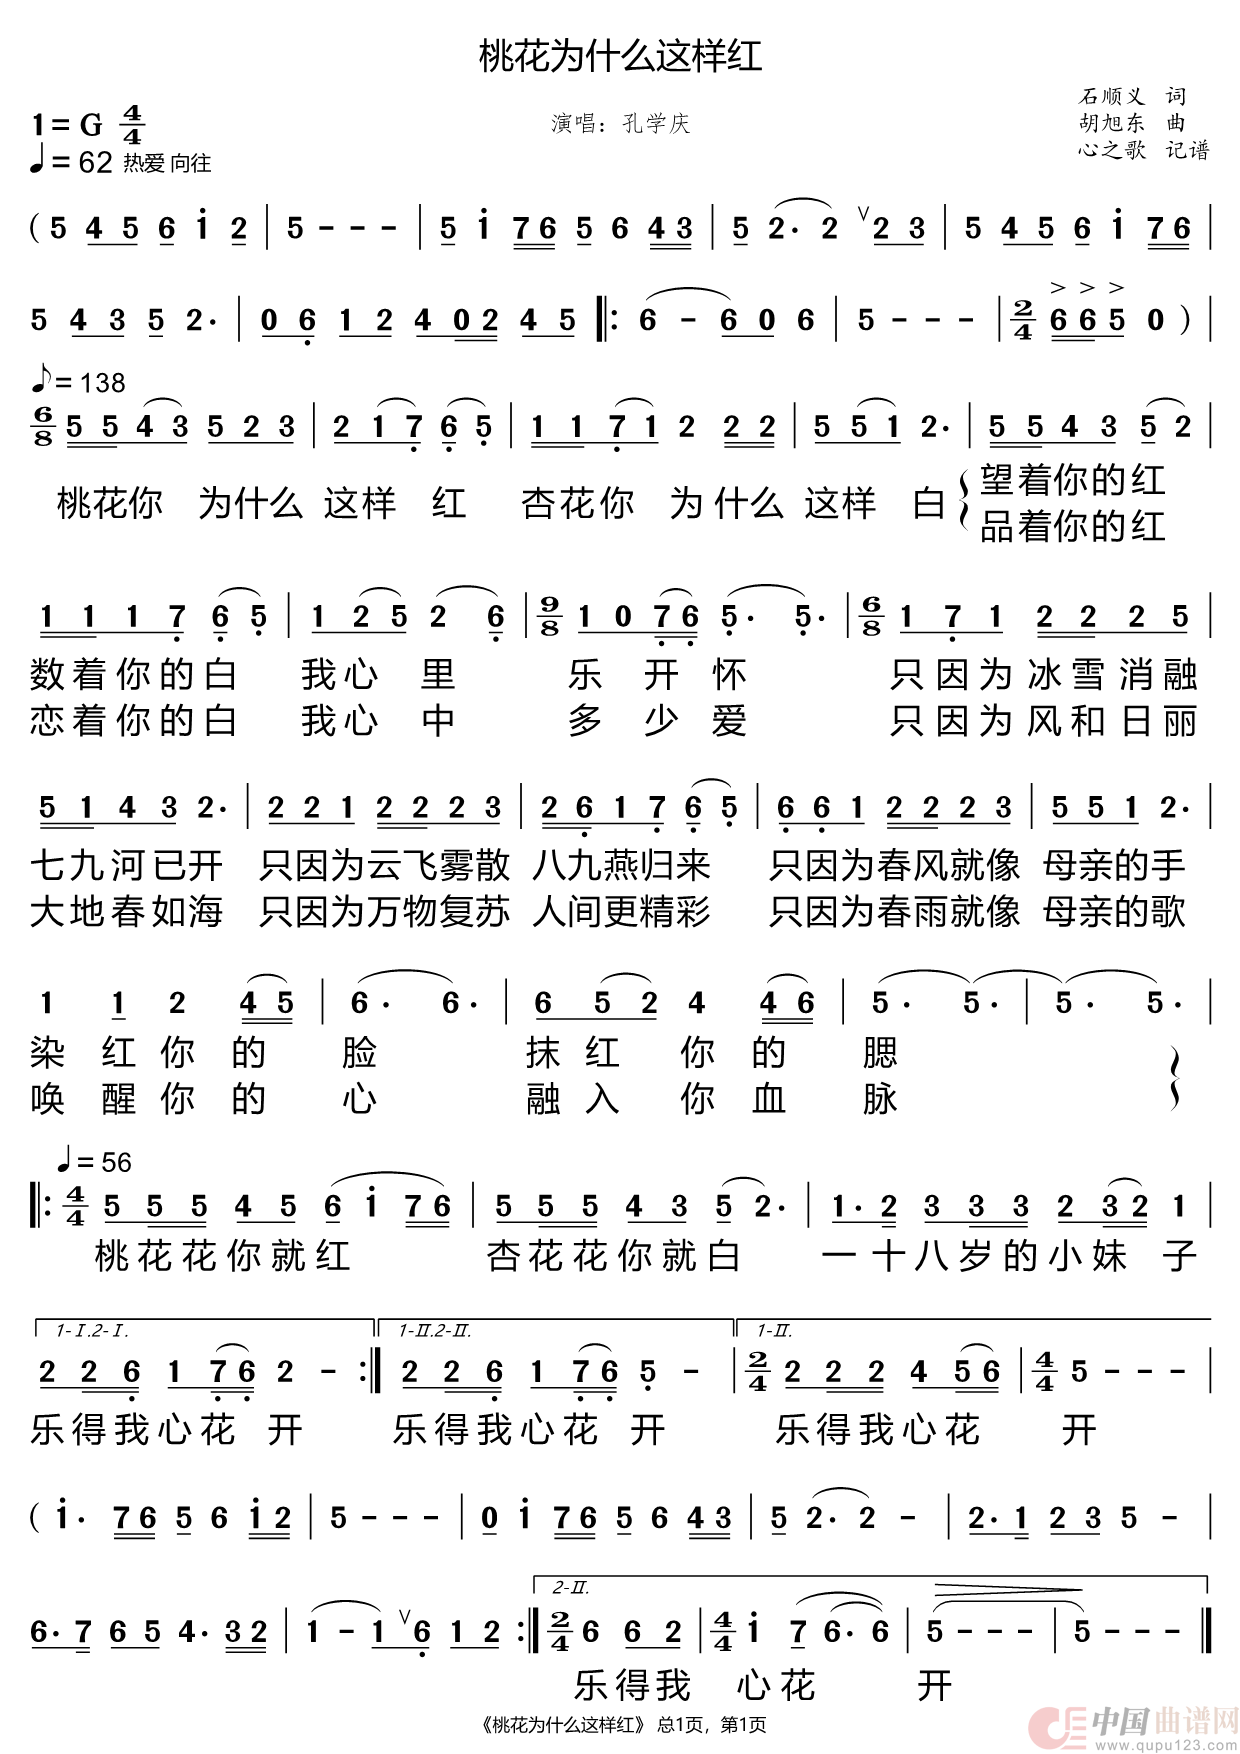 桃花为什么这样红
石顺义 词
1=G 4/4 演唱：孔学庆 胡旭东 曲
♩=62 热爱 向往 心之歌 记谱
( 5 4 5 6 i 2 | 5 - - - | 5 i 7 6 5 6 4 3 | 5 2· 2 ∨ 2 3 | 5 4 5 6 i 7 6 |
5 4 3 5 2· | 0 6 1 2 4 0 2 4 5 ‖: 6 - 6 0 6 | 5 - - - | 2/4 > > > 6 6 5 0 ) |
♪=138
6/8 5 5 4 3 5 2 3 | 2 1 7 6 5 | 1 1 7 1 2 2 2 | 5 5 1 2· | 5 5 4 3 5 2 |
桃花你 为什么 这样 红 杏花你 为什么 这样 白 望着你的红
品着你的红
1 1 1 7 6 5 | 1 2 5 2 6 | 9/8 1 0 7 6 5· 5· | 6/8 1 7 1 2 2 2 5 |
数着你的白 我心 里 乐 开 怀 只因为冰雪消融
恋着你的白 我心 中 多 少 爱 只因为风和日丽
5 1 4 3 2· | 2 2 1 2 2 2 3 | 2 6 1 7 6 5 | 6 6 1 2 2 2 3 | 5 5 1 2· |
七九河已开 只因为云飞雾散 八九燕归来 只因为春风就像 母亲的手
大地春如海 只因为万物复苏 人间更精彩 只因为春雨就像 母亲的歌
1 1 2 4 5 | 6· 6· | 6 5 2 4 4 6 | 5· 5· | 5· 5· |
染 红 你 的 脸 抹 红 你 的 腮
唤 醒 你 的 心 融 入 你 血 脉
♩=56
‖: 4/4 5 5 5 4 5 6 i 7 6 | 5 5 5 4 3 5 2· | 1· 2 3 3 3 2 3 2 1 |
桃花花你就红 杏花花你就白 一十八岁的小妹 子
1-Ⅰ.2-Ⅰ. 1-Ⅱ.2-Ⅱ. 1-Ⅱ.
2 2 6 1 7 6 2 - :‖ 2 2 6 1 7 6 5 - | 2/4 2 2 2 4 5 6 | 4/4 5 - - - |
乐得我心花 开 乐得我心花 开 乐得我心花 开
( i· 7 6 5 6 i 2 | 5 - - - | 0 i 7 6 5 6 4 3 | 5 2· 2 - | 2· 1 2 3 5 - |
2-Ⅱ.
6· 7 6 5 4· 3 2 | 1 - 1 ∨ 6 1 2 :‖ 2/4 6 6 2 | 4/4 i 7 6· 6 | 5 - - - | 5 - - - ‖
乐得我 心花 开
《桃花为什么这样红》 总1页，第1页
中国曲谱网
www.qupu123.com